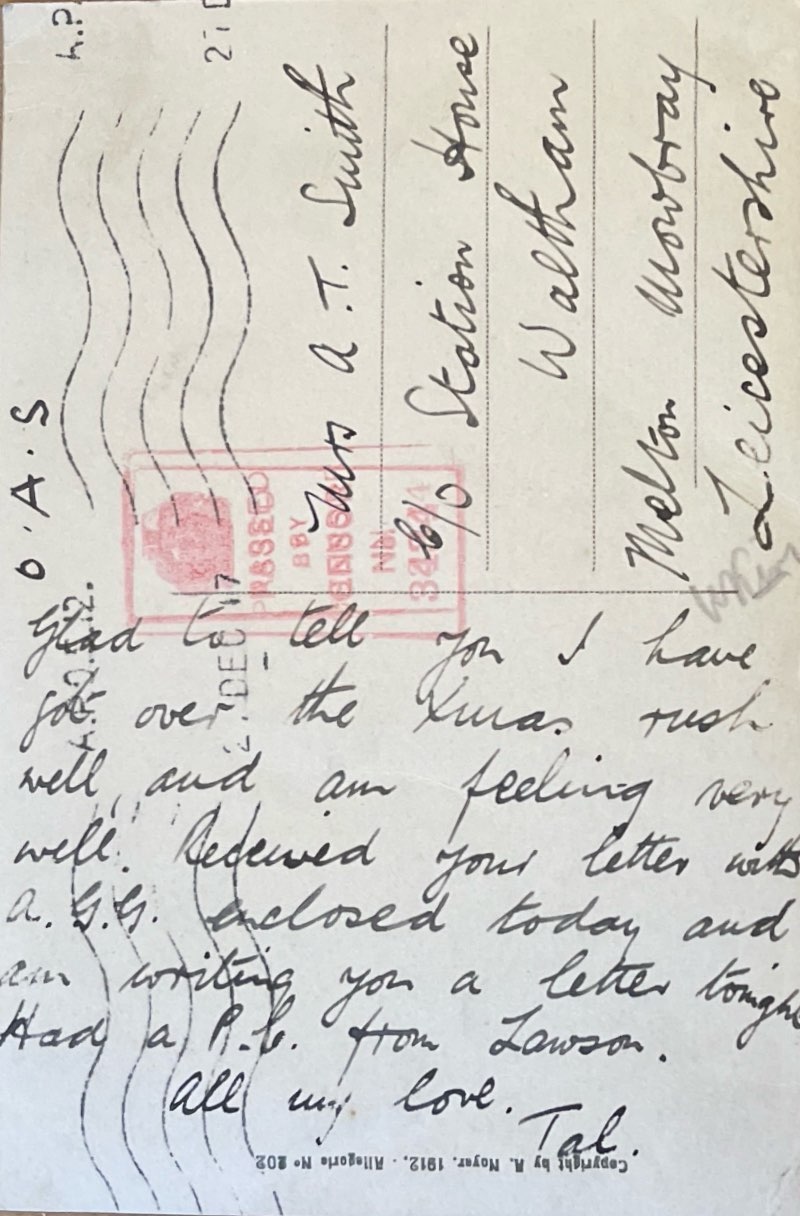 O.A.S
Mrs A.T. Smith
c/o Station House
Waltham
Melton Mowbray
Leicestershire
PASSED
BY
CENSOR
No.
Glad to tell you I have
got over the Xmas rush
well and am feeling very
well. Received your letter with
A.G.G. enclosed today and
am writing you a letter tonight
Had a P.C. from Lawson.
All my love.
Tal.
DEC 17
Copyright by A. Noyer. 1912. - Allegorie No 202